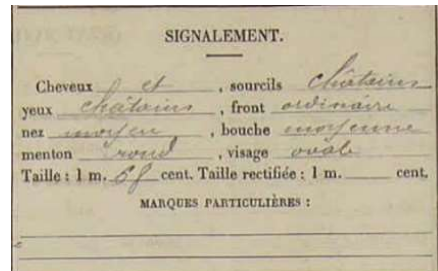 SIGNALEMENT.
Cheveux et , sourcils châtains
yeux châtains , front ordinaire
nez moyen , bouche moyenne
menton rond , visage ovale
Taille : 1 m. cent. Taille rectifiée : 1 m. cent.
MARQUES PARTICULIÈRES :